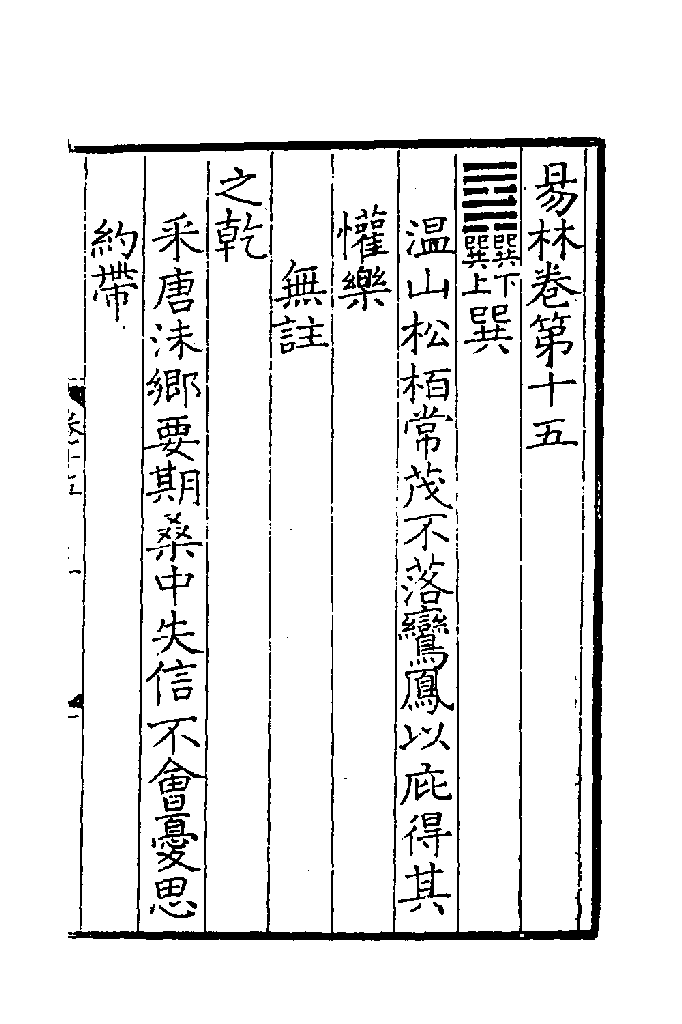 易林卷第十五
䷸巽下巽上巽
温山松栢常茂不落鸞鳳以庇得其
懽樂
無註
之乾
采唐沬鄉要期桑中失信不會憂思
約帶
卷十五
一